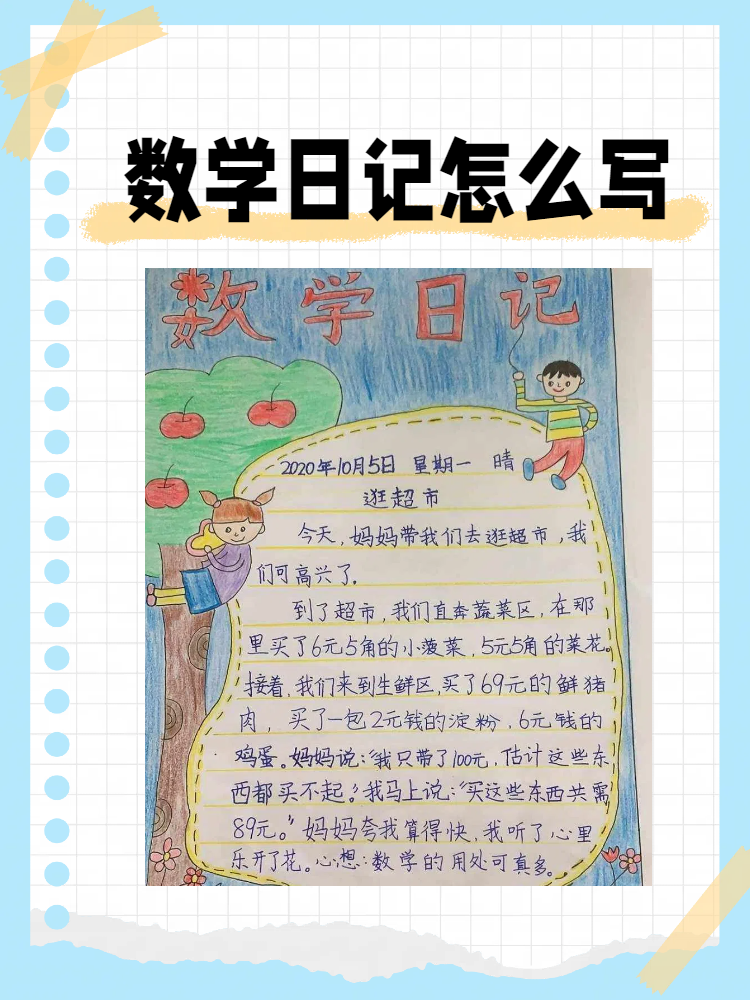 数学日记怎么写
数学日记
2020年10月5日 星期一 晴
逛超市
今天,妈妈带我们去逛超市,我
们可高兴了。
到了超市,我们直奔蔬菜区,在那
里买了6元5角的小菠菜,5元5角的菜花。
接着,我们来到生鲜区,买了69元的鲜猪
肉,买了一包2元钱的淀粉,6元钱的
鸡蛋。妈妈说:“我只带了100元,估计这些东
西都买不起。”我马上说:“买这些东西共需
89元。”妈妈夸我算得快,我听了心里
乐开了花。心想:数学的用处可真多。